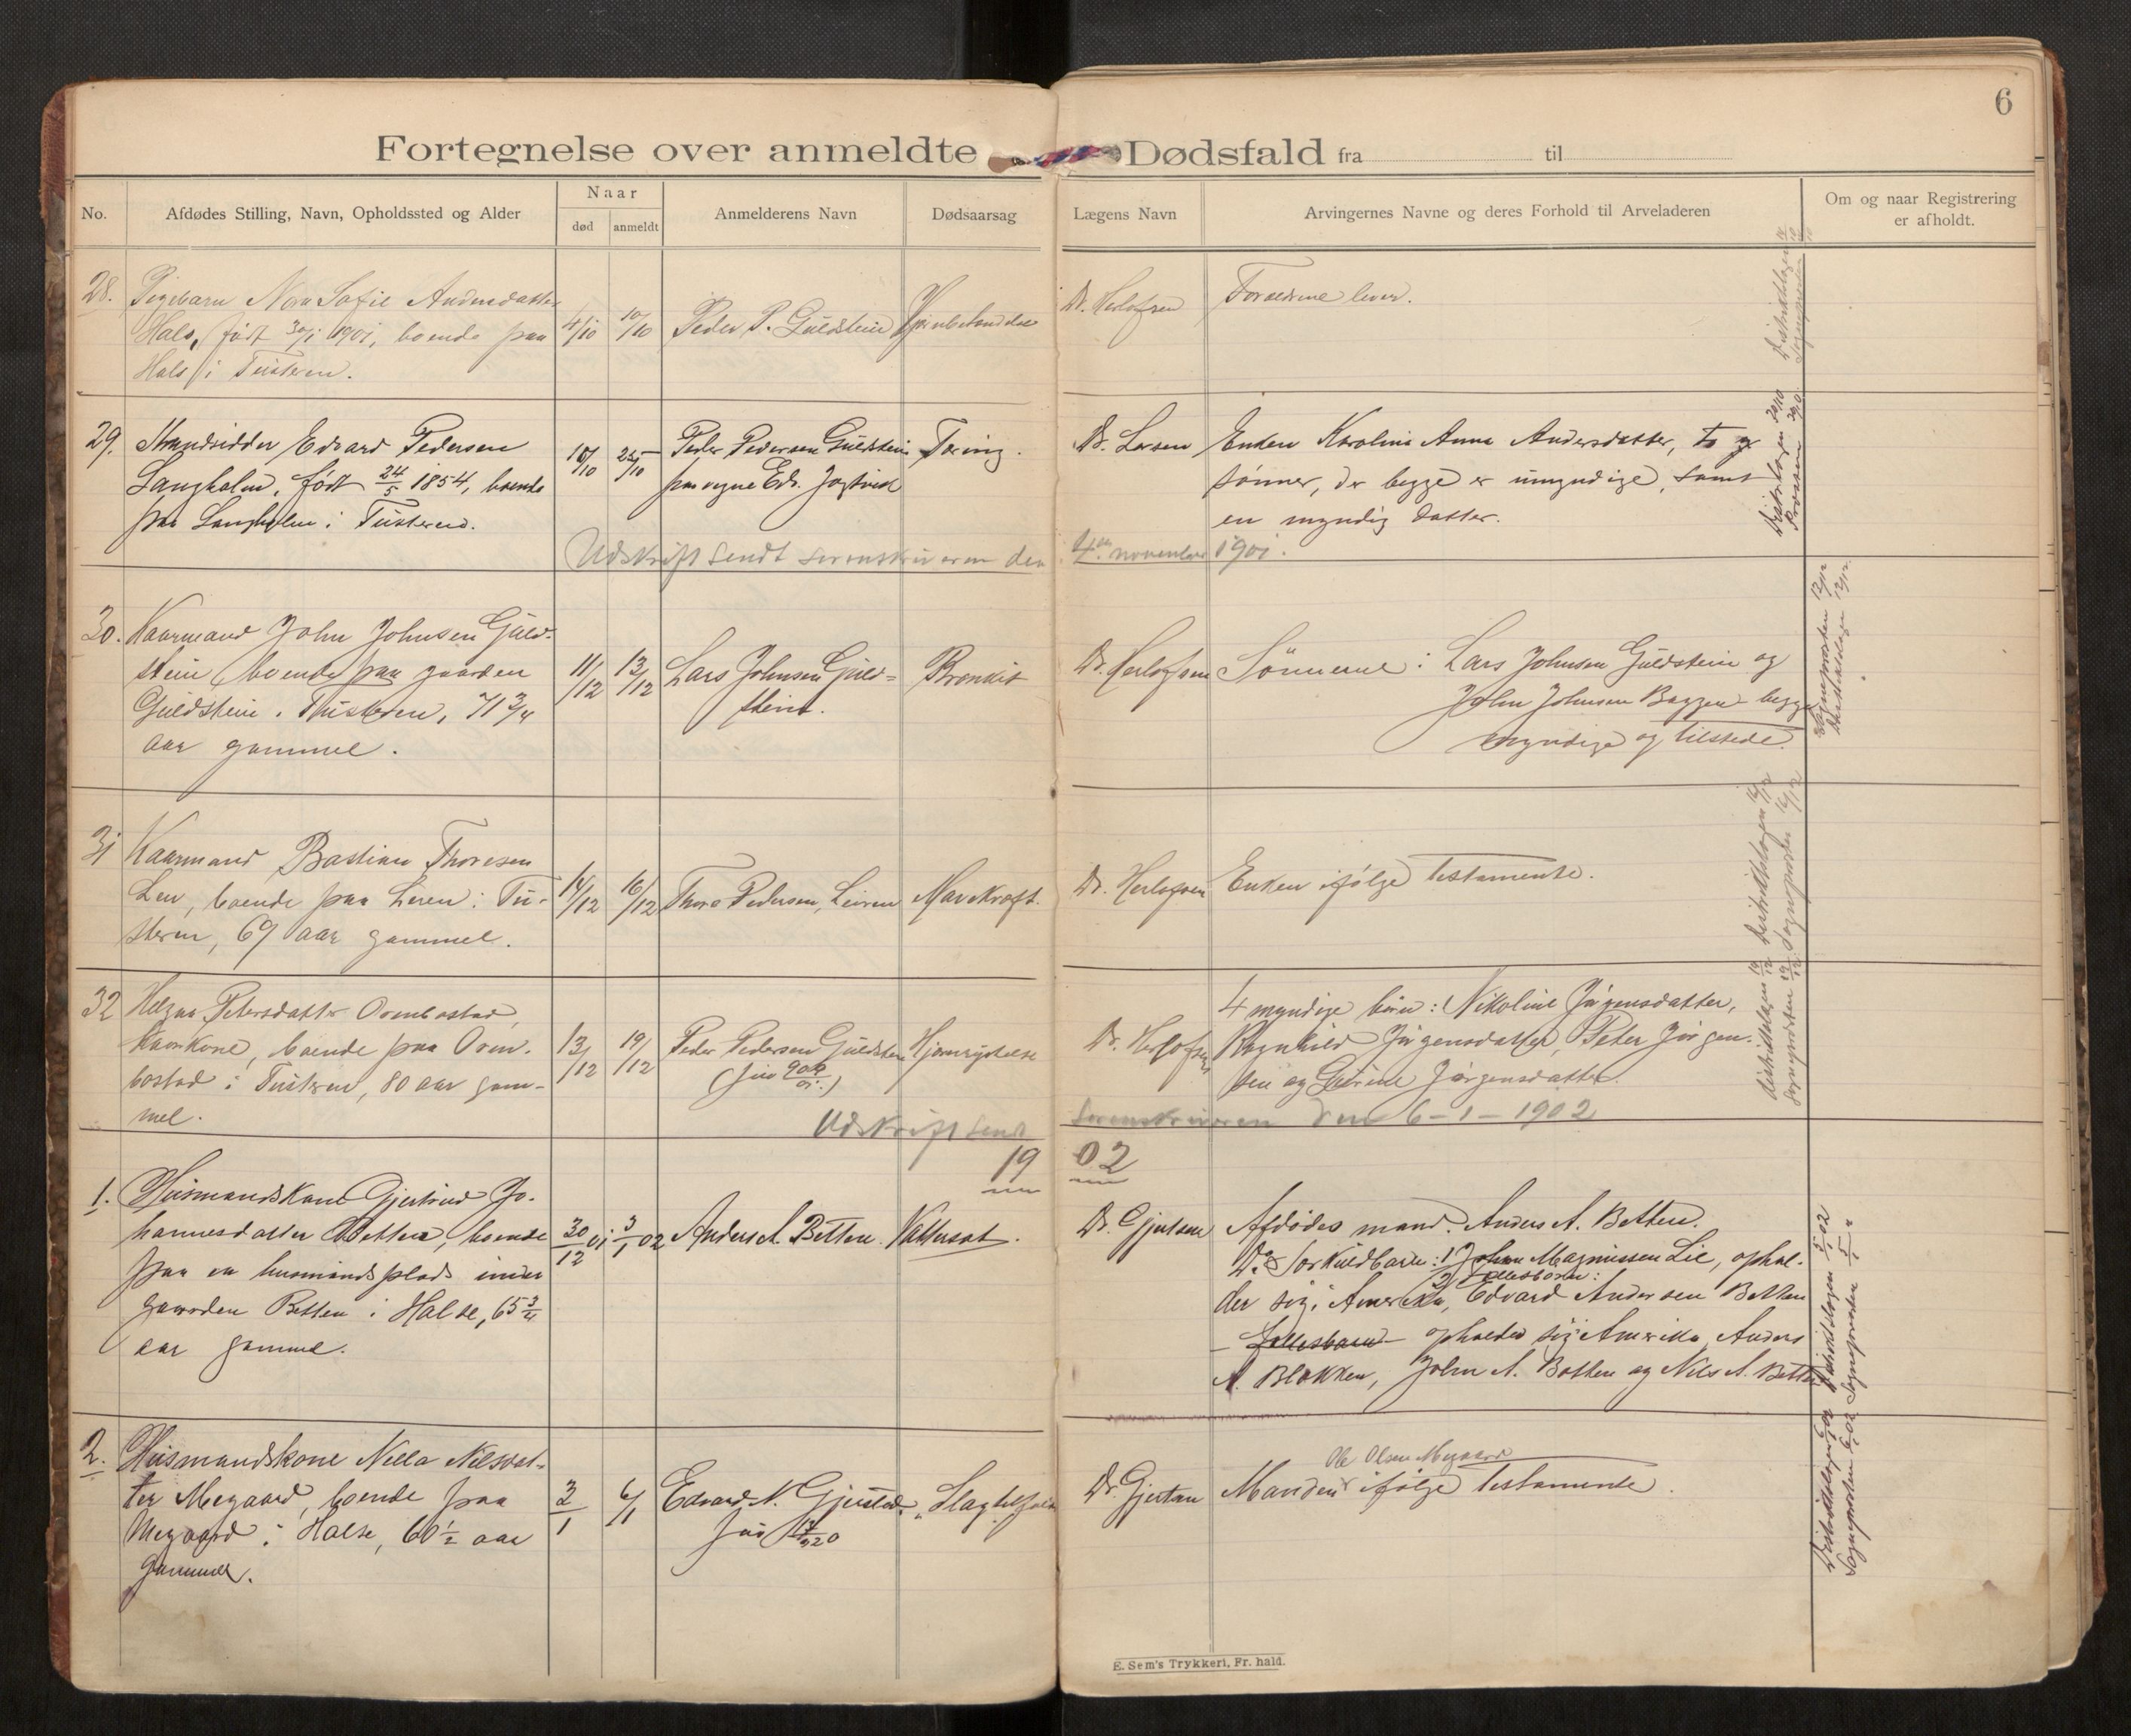 6
Fortegnelse over anmeldte Dødsfald fra til
No. Afdødes Stilling, Navn, Opholdssted og Alder Naar død anmeldt Anmelderens Navn Dødsaarsag Lægens Navn Arvingernes Navne og deres Forhold til Arveladeren Om og naar Registrering er afholdt.
28. Pigebarn Nora Sofie Andersdatter
Hals, født 30/1 1901, boende paa
Hals i Tusteren.
4/10 10/10 Peder P. Guldstein
Dr. Herlofsen Forældrene lever.
Distriktslægen
Sognepresten
29. Strandsidder Edvard Pedersen
Langholm, født 24/5 1854, boende
paa Langholm i Tusteren.
10/10 25/10 Peder Pedersen Guldstein
paa vegne Edv.
Tæring.
Dr. Larsen Enken Karoline Anna Andersdatter, to
sønner, der begge er umyndige, samt
en myndig datter.
Distrlægen 29/10
Provsten
Udskrift sendt sorenskriveren den 4de november 1901.
30. Kaarmand John Johnsen Guld-
stein boende paa gaarden
Guldstein i Tusteren, 71 3/4
aar gammel.
11/12 13/12 Lars Johnsen Guld=
stein.
Bronkit
Dr. Herlofsen Sønnerne: Lars Johnsen Guldstein og
John Johnsen Baggen begge
myndige og tilstede.
Sognepresten 13/12
Distriktslægen 13/12
31 Kaarmand Bastian Thoresen
Leren, boende paa Leren i Tu-
steren, 69 aar gammel.
14/12 16/12 Thore Pedersen, Leiren Marvkræft.
Dr. Herlofsen Enken ifølge testamente.
Distriktslægen 16/12
Sognepresten 16/12
32 Petersdatter Ormbostad,
Kaarkone, boende paa Orm-
bostad i Tusteren, 80 aar gam-
mel.
13/12 19/12 Peder Pedersen Guldstein
Hjernrystelse
Dr. Herlofsen 4 myndige børn: Nikoline Jørgensdatter,
Ragnhild Jørgensdatter, Peter Jørgen-
sen og Jørgensdatter.
Distriktslægen 19/12
Sognepresten 19/12
Udskrift sendt Sorenskriveren den 6-1-1902
1902
1. Husmandskone Gjertrud Jo-
hannesdatter Betten, boende
paa en husmandsplads under
gaarden Betten i Halse, 65 3/4
aar gammel.
30/12 01 3/1 02 Anders A. Betten. Vattersot.
Dr. Gjertsen Afdødes mand. Anders A. Betten.
Do Særkuldbarn: 1) Johan Magnussen Lie, ophol-
2) Fællesbørn:
der sig i Amerika, Edvard Andersen Betten
- Fællesbarn - opholder sig i Amerika, Anders
A. Blakken, John A. Betten og Nils A. Betten
Distriktslægen 5/1 02
Sogneprosten 5/1 "
2. Husmandskone Nilsdat-
ter Megaard, boende paa
Megaard i Halse, 60 1/2 aar
gammel.
3/1 6/1 Edvard N. "Slagtilfælde
Ole Olsen Megaard
Dr. Gjertsen Manden ifølge testamente.
Distriktslægen 6/1 02
Sogneprosten 6/1 02
E. Sem's Trykkeri, Fr. hald.